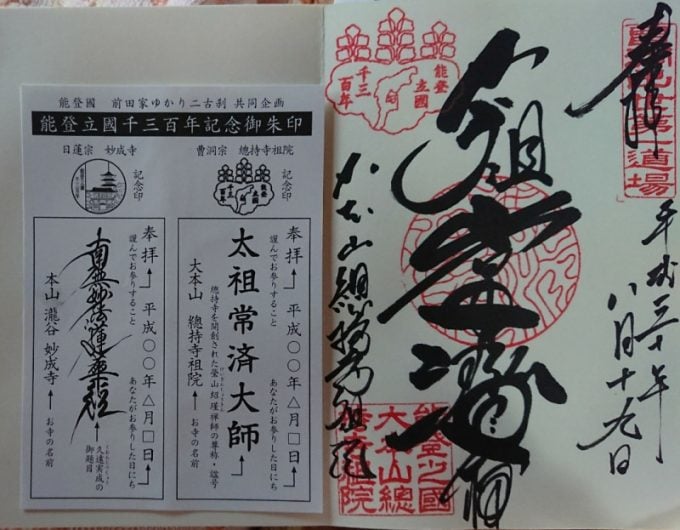 能登國 前田家ゆかり二古刹 共同企画
能登立國千三百年記念御朱印
日蓮宗 妙成寺
記念印
曹洞宗 總持寺祖院
記念印
能登
立國
千三
百年
奉拝
謹んでお参りすること
平成〇〇年△月□日
あなたがお参りした日にち
太祖常済大師
總持寺を開創された瑩山紹瑾禅師の尊称・諡号
大本山 總持寺祖院
お寺の名前
奉拝
謹んでお参りすること
平成〇〇年△月□日
あなたがお参りした日にち
南無妙法蓮華経
久遠実成の
御題目
本山 瀧谷 妙成寺
お寺の名前
奉拝
平成三十年
八月十九日
太祖常済大師
大本山總持寺祖院
能登
立國
千三
百年
能登之國
大本山總
持寺祖院